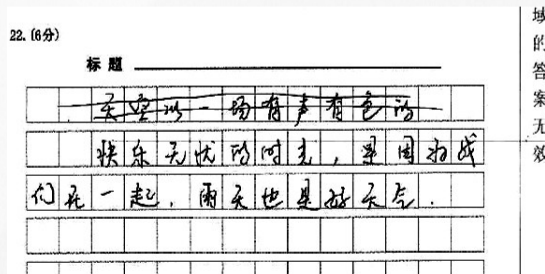 22.(6分)
标题
天空以一场有声有色的
快乐无忧的时光，是因为我
们在一起，雨天也是好天气.
域
的
答
案
无
效